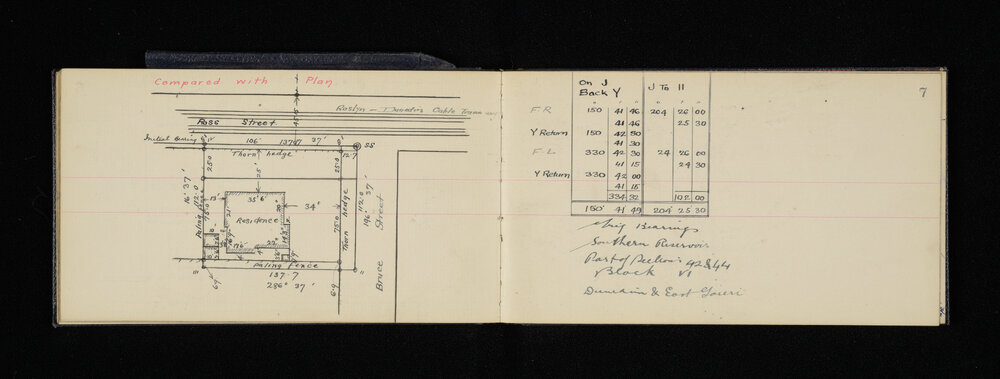 Compared with Plan
Roslyn - Dunedin Cable Tram
Ross Street
Initial Bearing
106° 37'
137.7
SS
Thorn hedge
12.7
25.0
25.0
25'
16° 37'
112.0
13'
35'6"
34'
Residence
Paling
75.0
75.0
Thorn hedge
112.0
196° 37'
Bruce Street
22'
17'6"
Paling Fence
137.7
286° 37'
6.9
On J
Back Y
J To II
7
FR 150 41 46 204 26 00
41 46 25 30
Y Return 150 42 30
41 30
FL 330 42 30 24 26 00
41 15 24 30
Y Return 330 42 00
41 15
334 32 102 00
150° 41 49 204 25 30
Bearings
Southern Reservoir
Part of Sections 42 & 44
Block VI
Dunedin & East Taieri